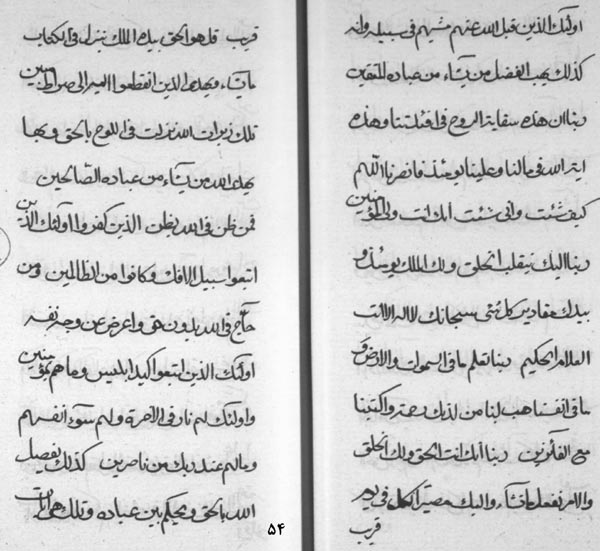 اولئك الذين قبل الله عنهم مشيهم في سبيله وانه
كذلك يهب الفضل من يشاء من عباده المتقين
ربنا ان هذه سقاية الروح في افئدتنا وهذه
الله في مالنا وعلينا يومئذ فانصرنا اللهم
كيف شئت وانى شئت انك انت ولي المؤمنين
ربنا اليك ينقلب الخلق ولك الملك يومئذ و
بيدك مقادير كل شئ سبحانك لا اله الا انت
العلام الحكيم ربنا تعلم ما في السموات والارض و
ما في انفسنا هب لنا من لدنك رحمة واكتبنا
مع الفائزين ربنا انك انت الحق ولك الخلق
والامر تفعل ما تشاء واليك مصير الكل في يوم
قريب
قريب قل هو الحق بيده الملك ينزل في الكتاب
ما يشاء ويهدي الذين انقطعوا اليه الى صراط مبين
تلك زبرات الله نزلت في اللوح بالحق وبها
يهدي الله من يشاء من عباده الصالحين
فمن ظن في الله بظن الذين كفروا اولئك الذين
اتبعوا سبيل الافك وكانوا من الظالمين ومن
حاج في الله بدون حق واعرض عن وجه نفسه
اولئك الذين اتبعوا كيد ابليس وما هم بمؤمنين
واولئك لهم نار في الاخرة ولهم سوء انفسهم
وما لهم عند ربك من ناصرين كذلك يفصل
الله بالحق ويحكم بين عباده وتلك هي آيات
٥٤